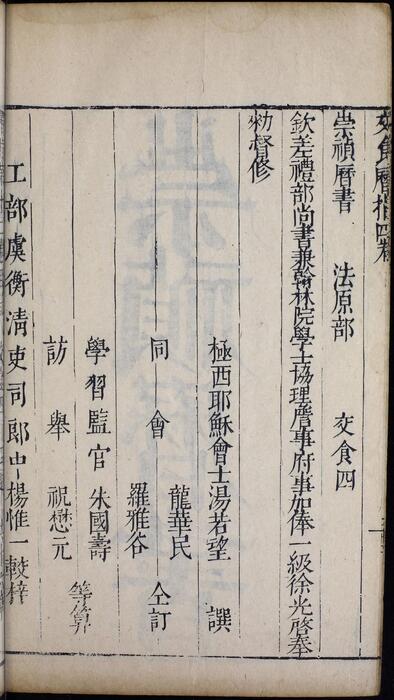 交食曆指四卷
崇禎曆書 法原部 交食四
欽差禮部尚書兼翰林院學士協理詹事府事加俸一級徐光啓奉
勑督修
極西耶穌會士湯若望 譔
龍華民
同會 仝訂
羅雅谷
學習監官 朱國壽
等算
訪舉 祝懋元
工部虞衡清吏司郎中楊惟一較梓